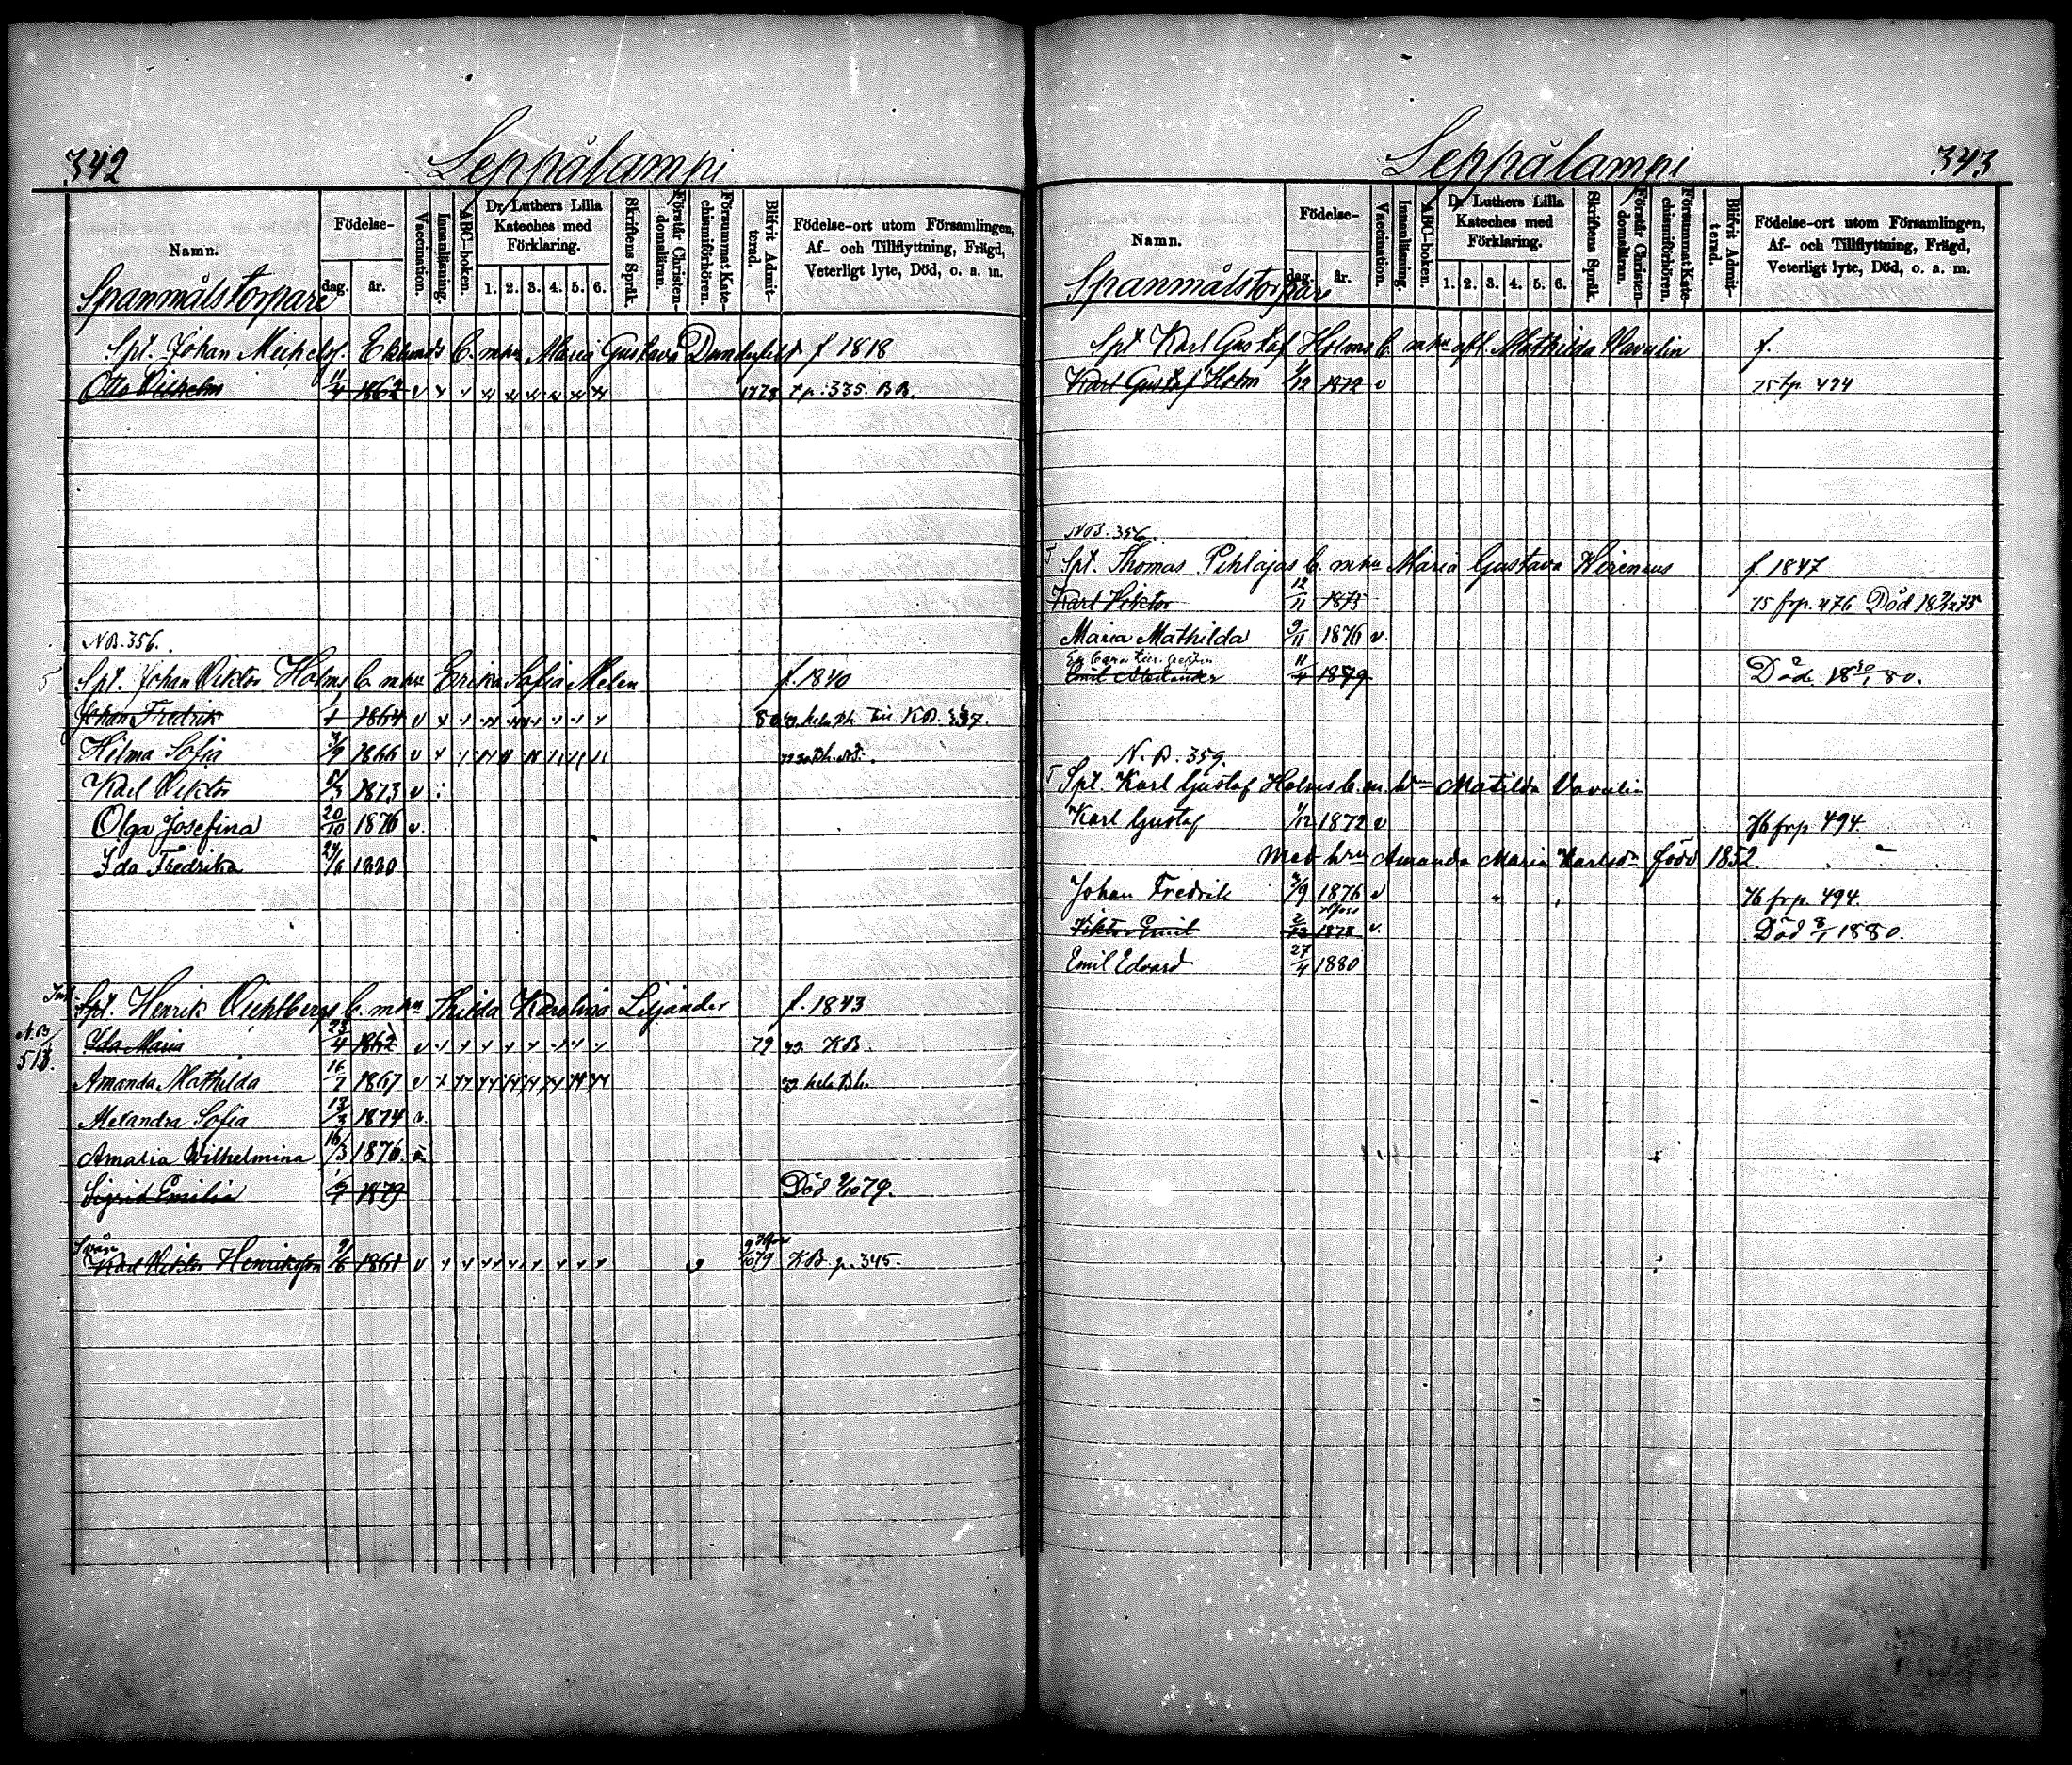 342
Leppälampi
Namn.
Födelse-
dag.
år.
Vaccination.
Innanläsning.
ABC-boken.
Dr Luthers Lilla Kateches med Förklaring.
1. 2. 3. 4. 5. 6.
Skriftens Språk.
Förstår Christendomsläran.
Försummat Katechismiförhören.
Blifvit Admitterad.
Födelse-ort utom Församlingen, Af- och Tillflyttning, Frägd, Veterligt lyte, Död, o. a. m.
Spanmålstorpare
Spt. Johan Michelsf. Eklunds b. m hu Maria Gustava f 1818
Otto Vilhelm 11/4 1862 v 1778 tp: 335. BB.
NB. 356.
Spt. Johan Viktor Holms b. m hu Erika Sofia Melen f. 1840
Johan Fredrik 1864 v KB. 337.
Hilma Sofia 1866 v
Karl Viktor 1873 v
Olga Josefina 20/10 1876 v.
Ida Fredrika 24/6 1880
Spt. Henrik b. m hu Thilda Karolina Liljander f. 1843
N.B 513.
Ida Maria 23/4 1862 v 79 KB.
Amanda Mathilda 16/7 1867 v
Alexandra Sofia 13/3 1874 v.
Amalia Wilhelmina 16/3 1876. v.
Sigrid Emilia 1879 Död 79.
Karl Viktor Henriksson 9/6 1861 v 79 KB. p. 345.
343
Leppälampi
Namn.
Födelse-
dag.
år.
Vaccination.
Innanläsning.
ABC-boken.
Dr Luthers Lilla Kateches med Förklaring.
1. 2. 3. 4. 5. 6.
Skriftens Språk.
Förstår Christendomsläran.
Försummat Katechismiförhören.
Blifvit Admitterad.
Födelse-ort utom Församlingen, Af- och Tillflyttning, Frägd, Veterligt lyte, Död, o. a. m.
Spanmålstorpare
Spt Karl Gustaf Holms b. m hu afl. Mathilda Vavulin f.
Karl Gustaf Holm 1/12 1872 v 75 fp 494
NB. 356.
Spt. Thomas Pihlajas b. m hu Maria Gustava Hirenius f. 1847
Karl Viktor 12/11 1875 75 frp. 476 Död
Maria Mathilda 9/11 1876 v.
Emil Alexander 11/4 1879 Död. 18 30/1 80.
N. B. 359.
Spt. Karl Gustaf Holms b. m. hu Matilda Vavulin
Karl Gustaf 1/12 1872 v 76 frp 494
Med hru Amanda Maria Karlsdr född 1852.
Johan Fredrik 1876 v 76 frp. 494
Viktor Emil 2/12 1878 v. Död 8/1 1880.
Emil Edvard 27/4 1880